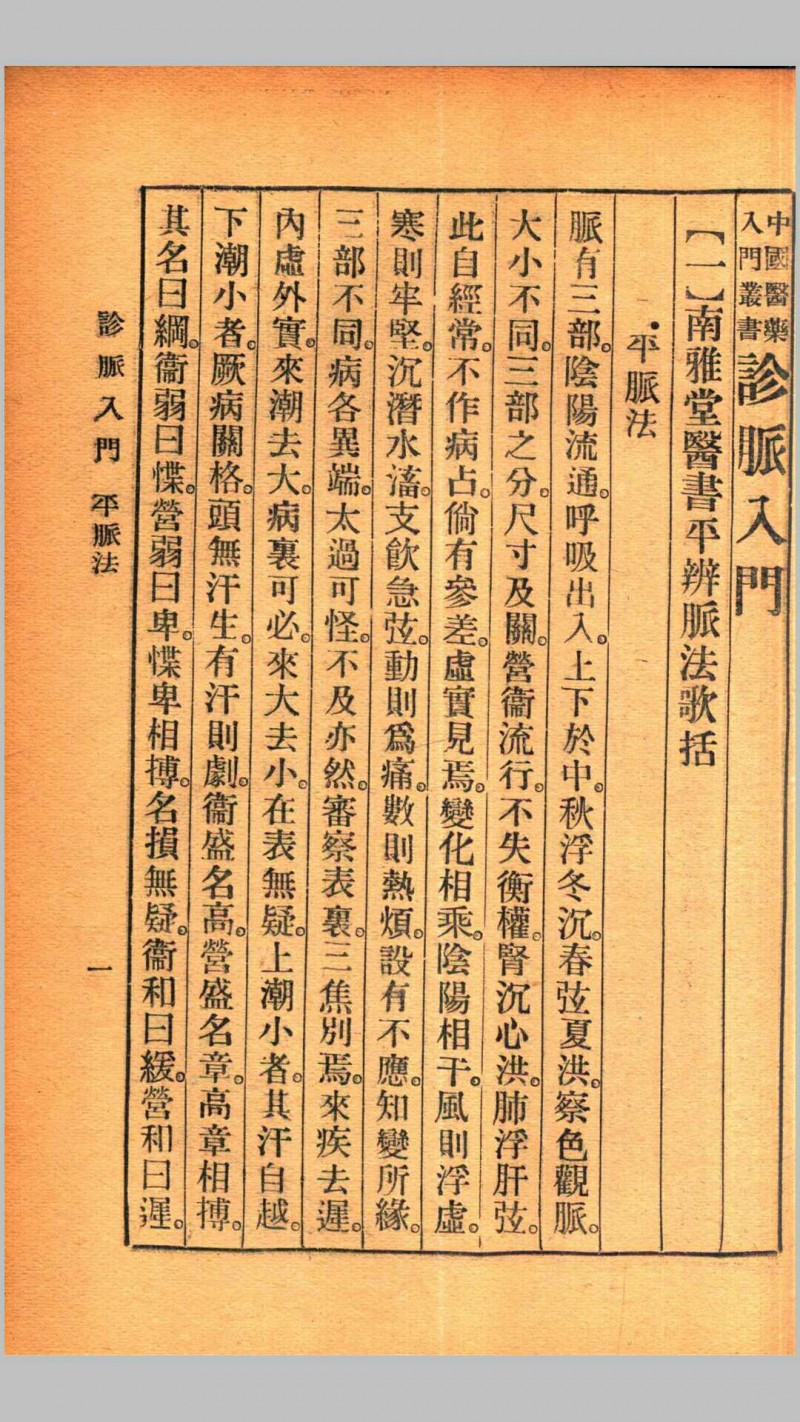 中國醫藥
入門叢書
診脈入門
【一】南雅堂醫書平辨脈法歌括
平脈法
脈有三部。陰陽流通。呼吸出入。上下於中。秋浮冬沉。春弦夏洪。察色觀脈。
大小不同。三部之分。尺寸及關。營衞流行。不失衡權。腎沉心洪。肺浮肝弦。
此自經常。不作病占。倘有參差。虛實見焉。變化相乘。陰陽相干。風則浮虛。
寒則牢堅。沉潛水滀。支飮急弦。動則爲痛。數則熱煩。設有不應。知變所緣。
三部不同。病各異端。太過可怪。不及亦然。審察表裏。三焦別焉。來疾去遲。
內虛外實。來潮去大。病裏可必。來大去小。在表無疑。上潮小者。其汗自越。
下潮小者。厥病關格。頭無汗生。有汗則劇。衞盛名高。營盛名章。高章相搏。
其名曰綱。衞弱曰惵。營弱曰卑。惵卑相搏。名損無疑。衞和曰緩。營和曰遲。
診脈入門 平脈法
一